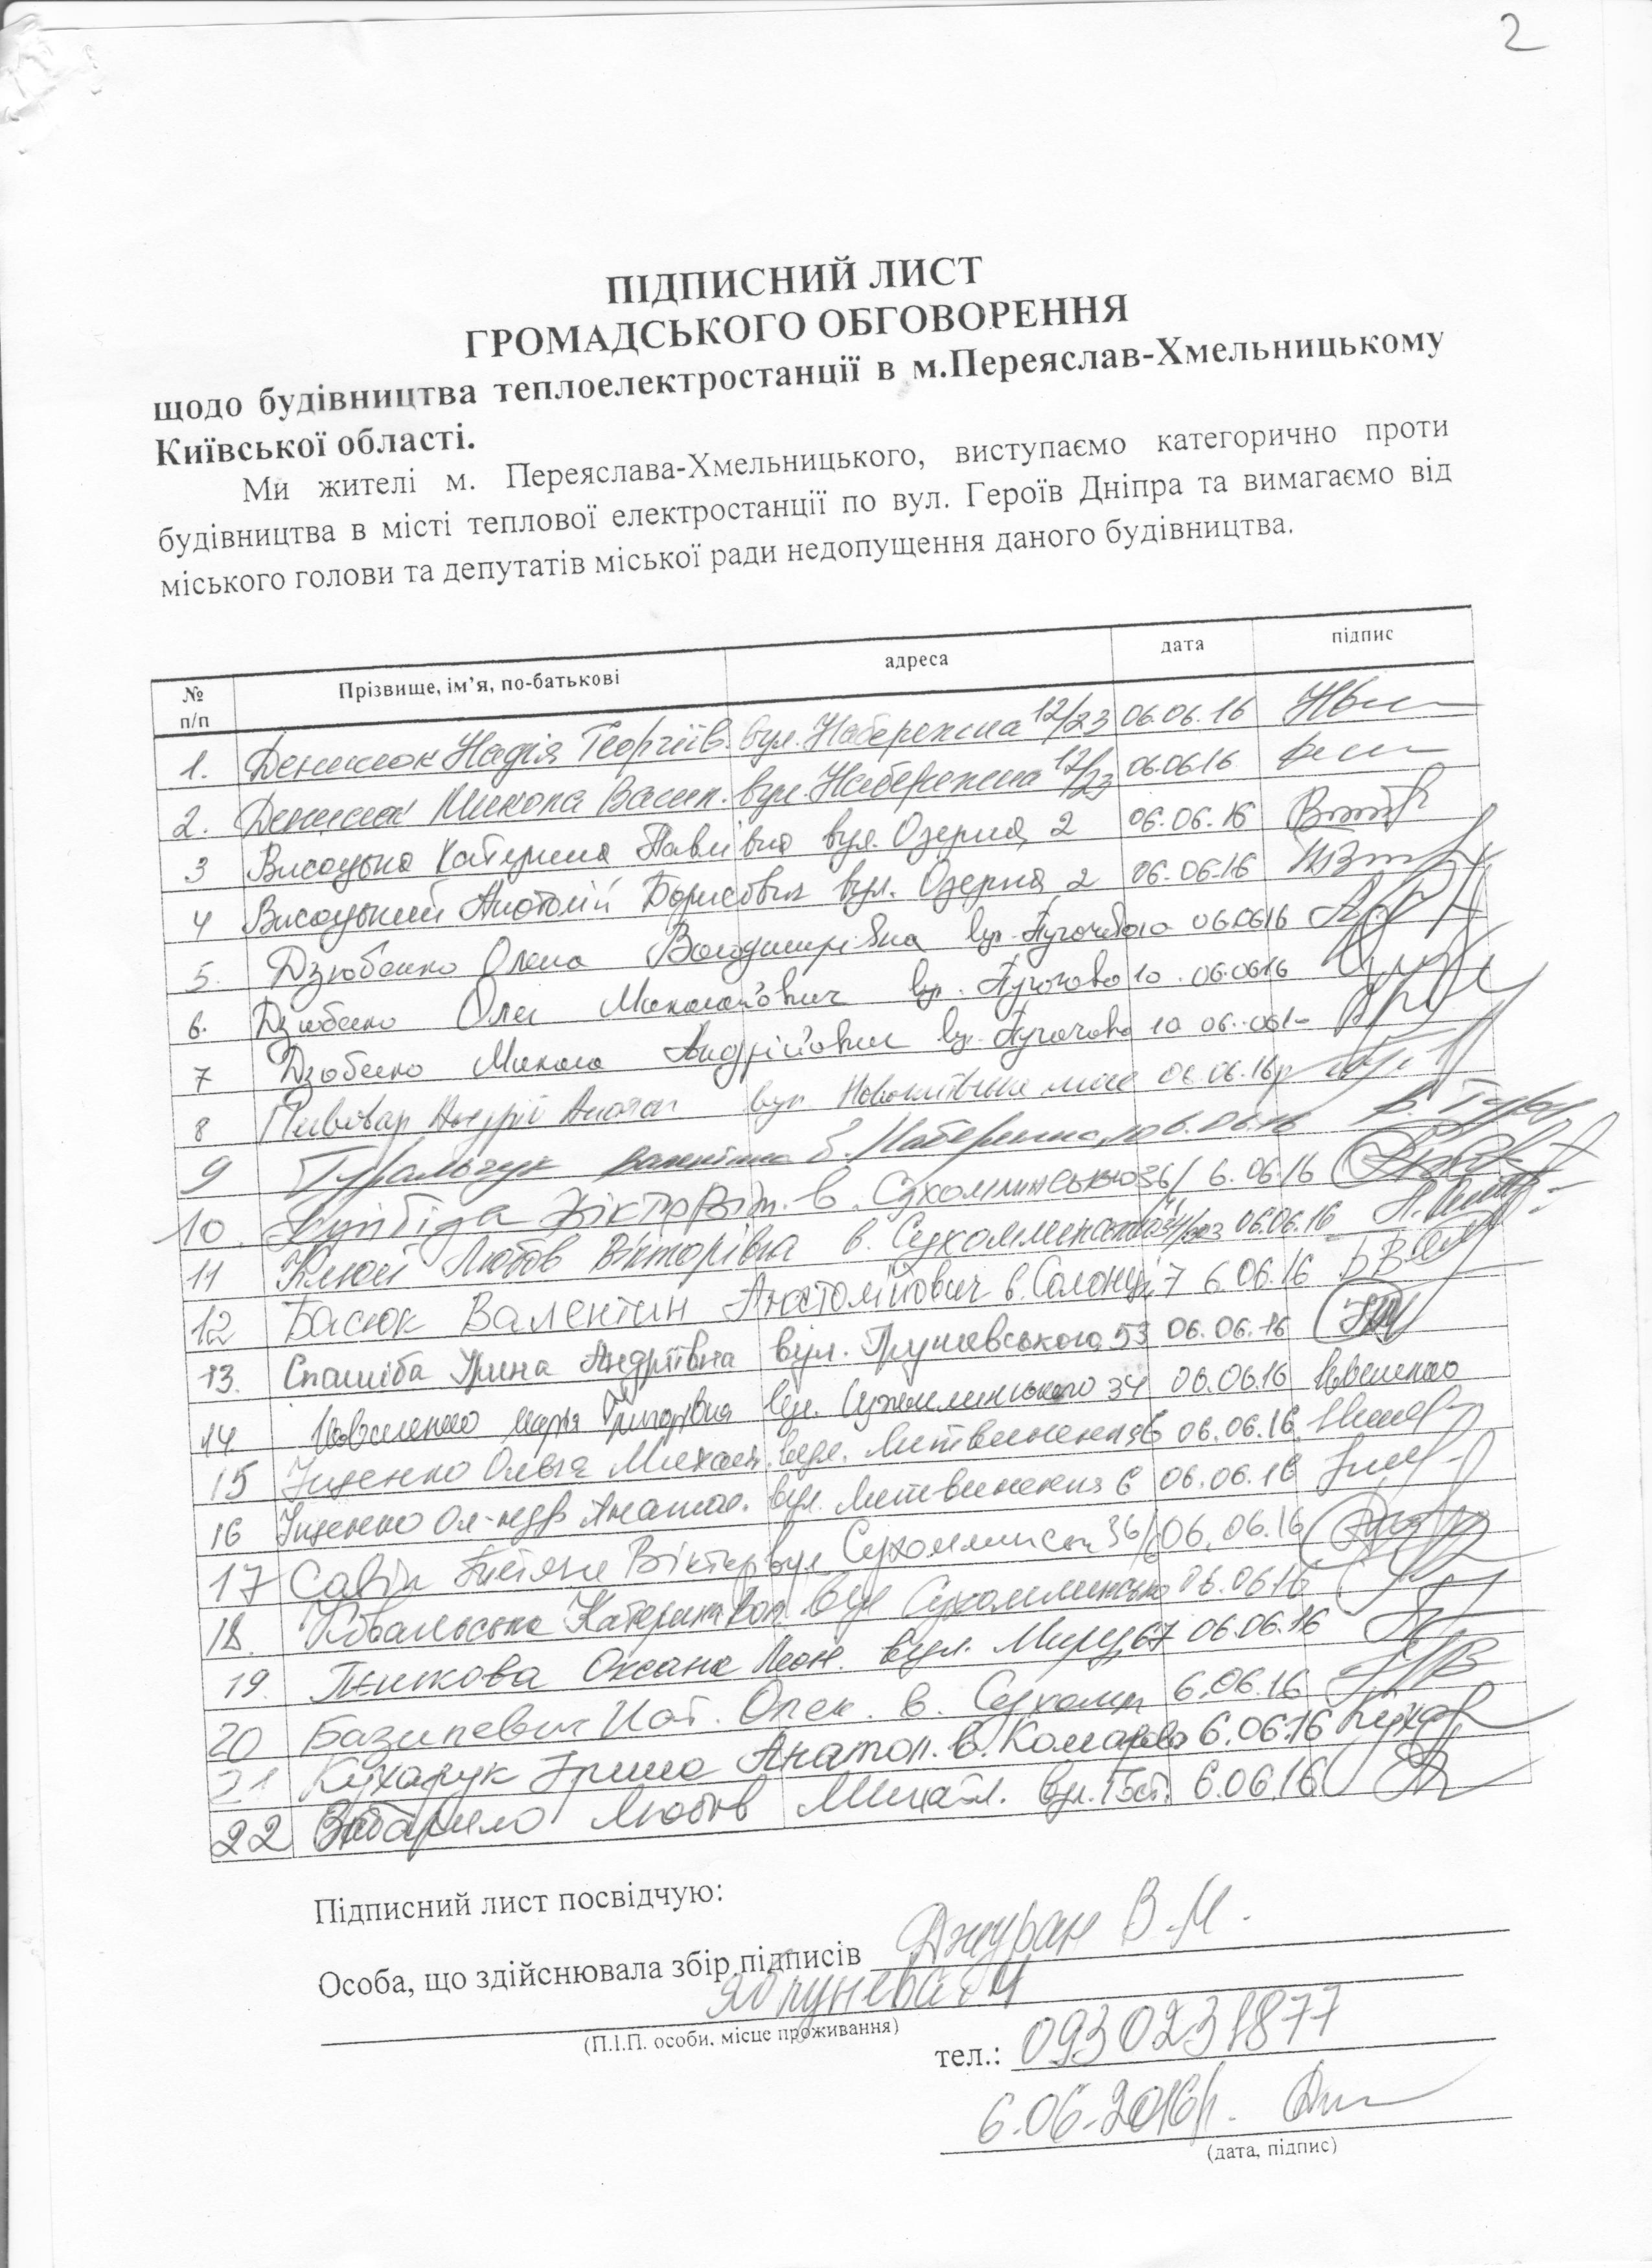 2
ПІДПИСНИЙ ЛИСТ
ГРОМАДСЬКОГО ОБГОВОРЕННЯ
щодо будівництва теплоелектростанції в м.Переяслав-Хмельницькому
Київської області.
Ми жителі м. Переяслава-Хмельницького, виступаємо категорично проти
будівництва в місті теплової електростанції по вул. Героїв Дніпра та вимагаємо від
міського голови та депутатів міської ради недопущення даного будівництва.
№ п/п Прізвище, ім’я, по-батькові адреса дата підпис
1. Денисюк Надія Георгіїв. вул. Набережна 12/23 06.06.16
2. Денисюк Микола Васил. вул. Набережна 12/23 06.06.16
3 Висоцька Катерина Павлівна вул. Озерна, 2 06.06.16
4 Висоцький Анатолій Борисович вул. Озерна, 2 06.06.16
5. Дзюбенко Олена Володимирівна вул. 06.06.16
6. Дзюбенко Олег Миколайович вул. Пугачова 10. 06.06.16
7 Дзюбенко Микола Андрійович вул. Пугачова 10 06.06.1
8 Пивовар Андрій Анатол вул 06.06.16р
9 Валентина В. Набережна, 6.06.16
10. Вікт. в. Сухомлинського 36/ 6.06.16
11 Клюй Любов Вікторівна в. Сухомлинського 06.06.16
12 Басюк Валентин Анатолійович в. Солонці, 7 6.06.16
13. Спашиба Ірина Андріївна вул. Грушевського, 53 06.06.16
14 Марія Григорівна вул. Сухомлинського 34 06.06.16
15 Іценко Ольга Михайл. вул. Литвиненка 6 06.06.16
16 Іценко Ол-ндр Анатол. вул. Литвиненка 6 06.06.16
17 Савін Тетяна Віктор вул Сухомлинск 36/ 06.06.16
18. Ковальська Катерина Вол. вул Сухомлинсько 06.06.16
19. Оксана Леон. вул. Миру, 67 06.06.16
20 Базилевич Нат. Олек. в. Сухомл 6.06.16
21 Кухарук Ірина Анатол. в. Комарова 6.06.16
22 Любов Михайл. вул. 6.06.16
Підписний лист посвідчую:
Особа, що здійснювала збір підписів Джуран В.М.
(П.І.П. особи, місце проживання)
тел.: 0930231877
6.06.2016р.
(дата, підпис)